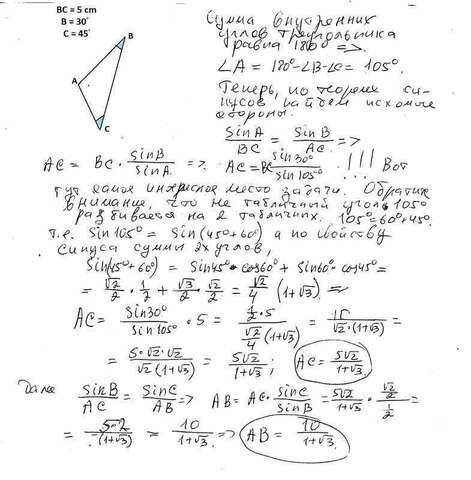 BC = 5 cm
B = 30°
C = 45°
B
A
C
Сумма внутренних
углов треугольника
равна 180° =>.
∠A = 180°-∠B-∠C = 105°.
Теперь, по теореме си-
нусов найдем искомые
стороны.
sinA/BC = sinB/AC =>
AC = BC · sinB/sinA => AC = BC sin30°/sin105° !!! Вот
тут самое интересное место задачи. Обратим
внимание, что не табличный угол 105°
разбивается на 2 табличных. 105°=60°+45°.
т.е. sin105° = sin(45°+60°) а по свойству
синуса суммы 2х углов,
sin(45°+60°) = sin45°·cos60° + sin60°·cos45° =
= √2/2 · 1/2 + √3/2 · √2/2 = √2/4 (1+√3) =>
AC = sin30°/sin105° · 5 = 1/2·5 / √2/4(1+√3) = 10/√2·(1+√3) =
= 5·√2·√2/√2(1+√3) = 5√2/1+√3; AC = 5√2/1+√3
Далее sinB/AC = sinC/AB => AB = AC · sinC/sinB = 5√2/1+√3 · √2/2 / 1/2 =
= 5·2/(1+√3) = 10/1+√3 => AB = 10/1+√3.